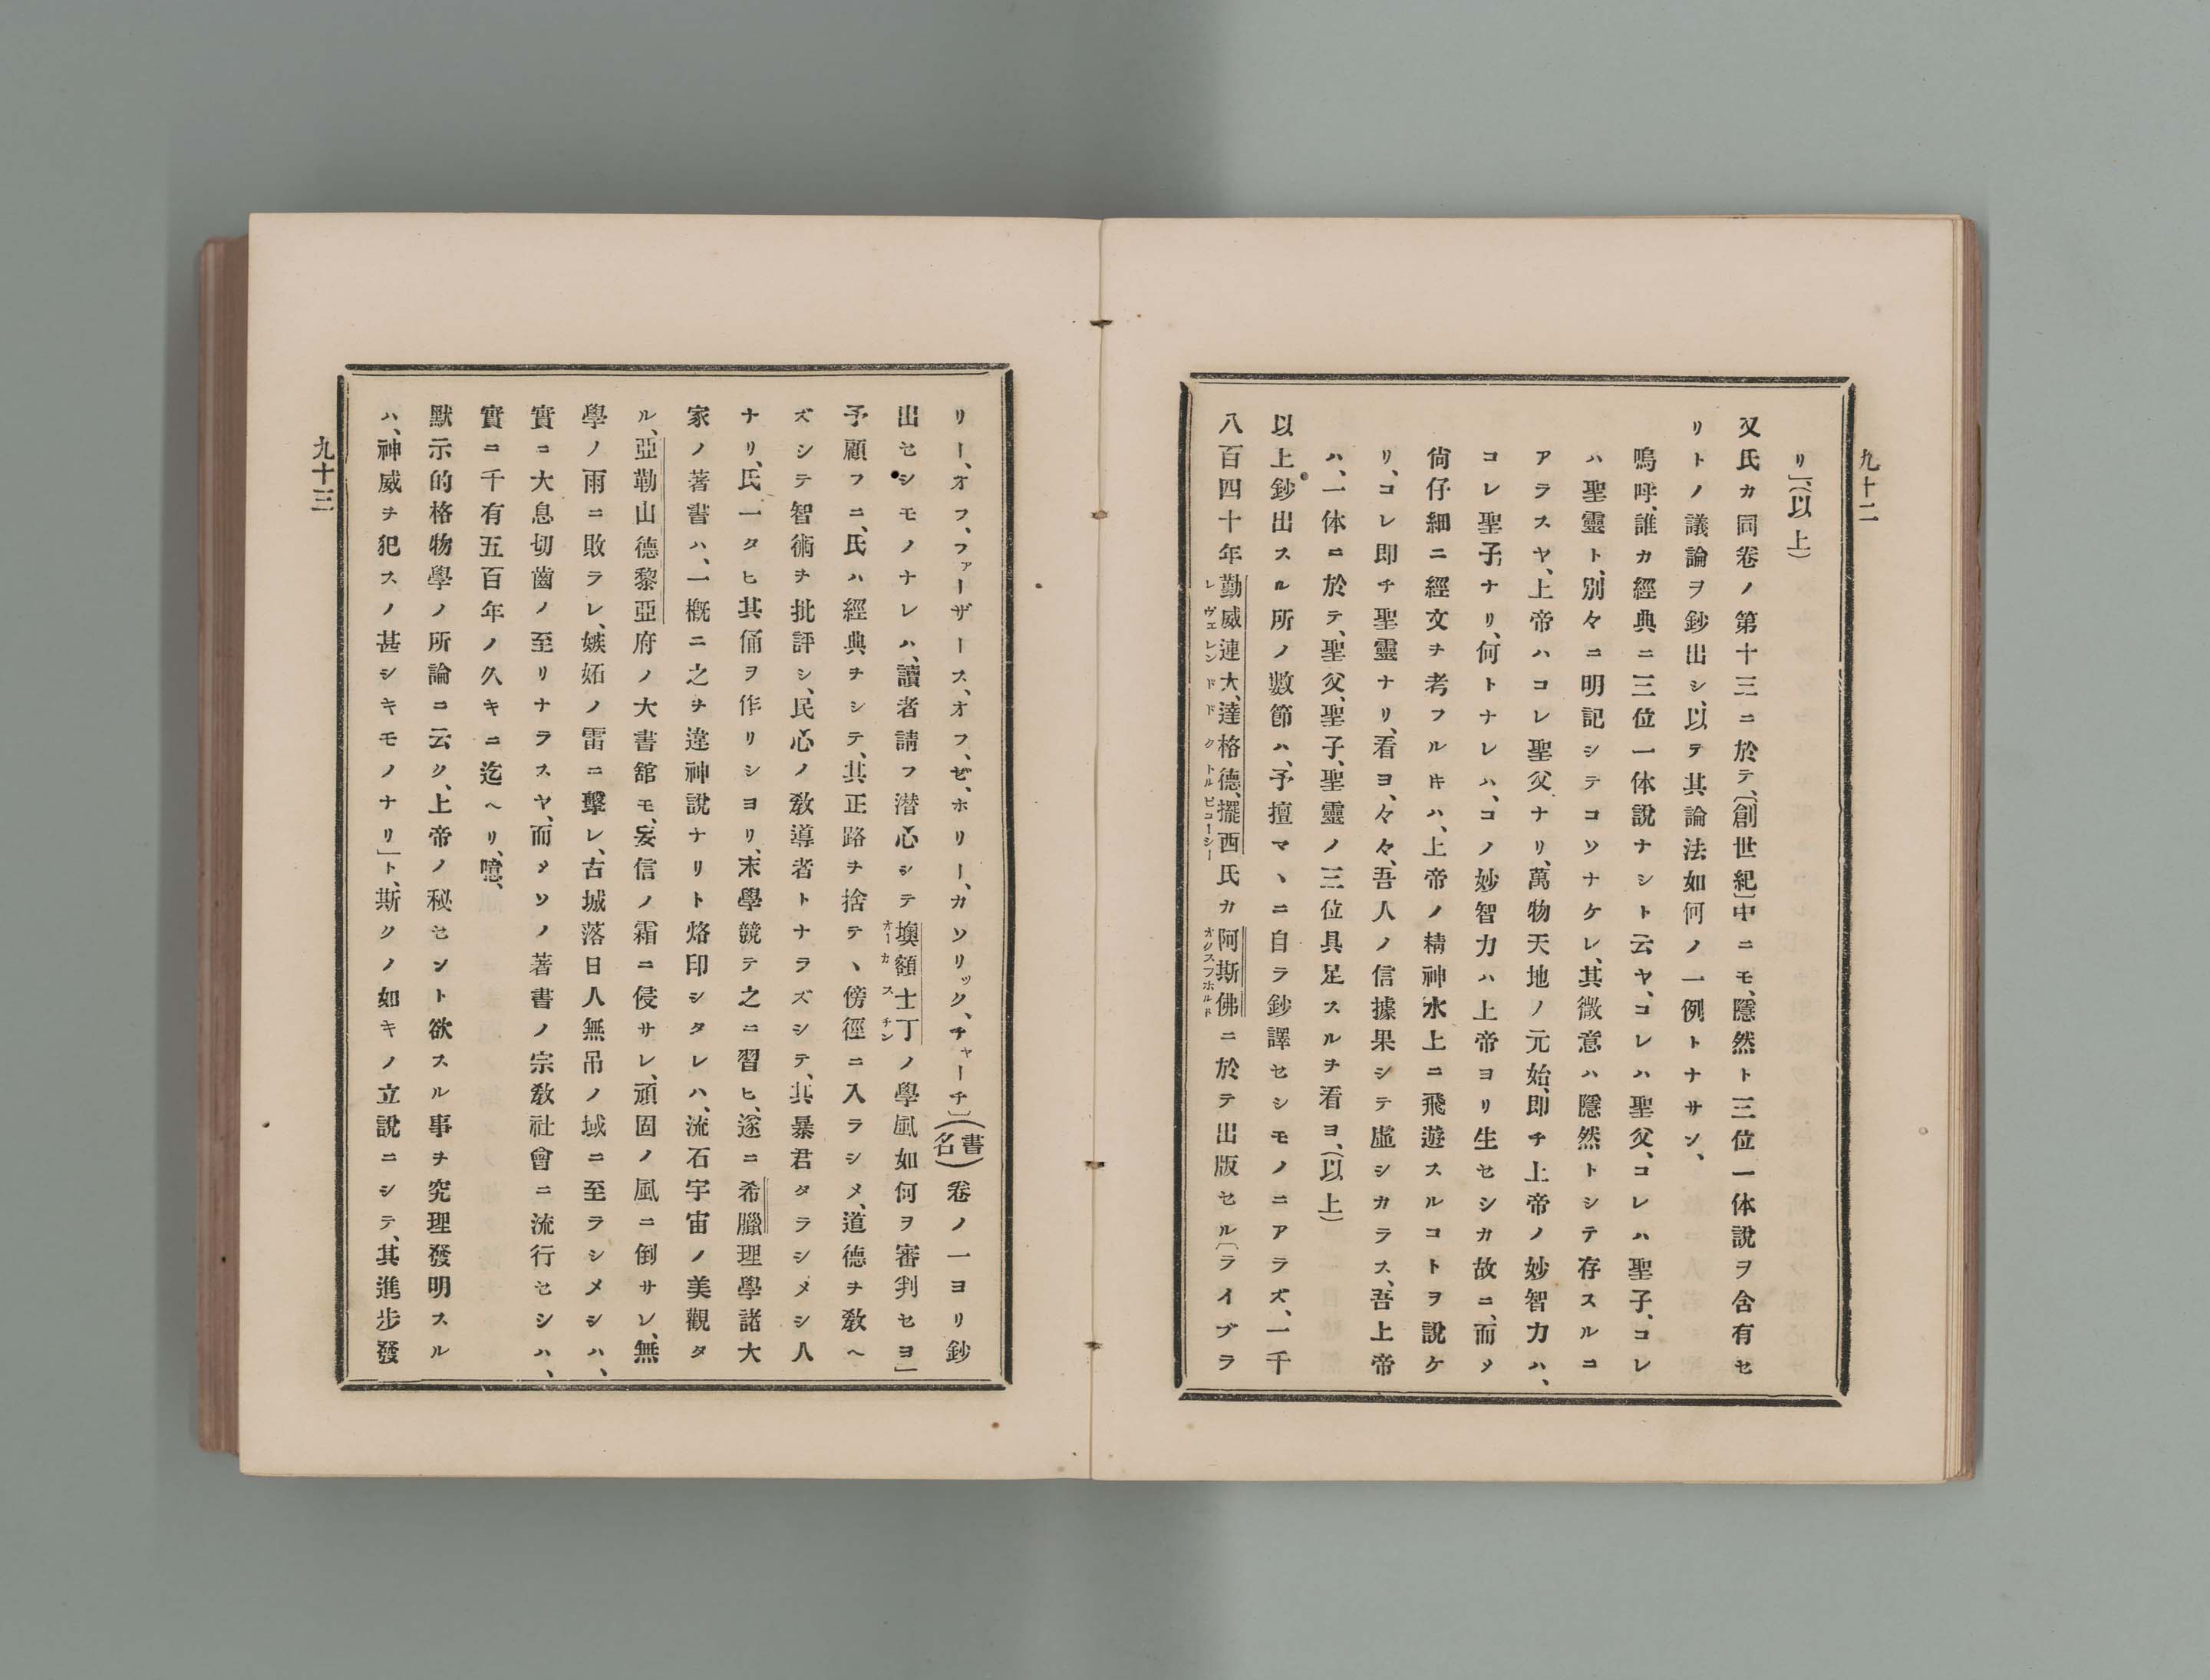 九十二
リ」(以上)
又氏カ同卷ノ第十三ニ於テ、〔創世紀〕中ニモ、隱然ト三位一体說ヲ含有セ
リトノ議論ヲ鈔出シ、以テ其論法如何ノ一例トナサン、
嗚呼、誰カ經典ニ三位一体說ナシト云ヤ、コレハ聖父、コレハ聖子、コレ
ハ聖靈ト、別々ニ明記シテコソナケレ、其微意ハ隱然トシテ存スルニ
アラスヤ、上帝ハコレ聖父ナリ、萬物天地ノ元始、即チ上帝ノ妙智力ハ、
コレ聖子ナリ、何トナレハ、コノ妙智力ハ上帝ヨリ生セシカ故ニ、而メ
尙仔細ニ經文ヲ考フルキハ、上帝ノ精神水上ニ飛遊スルコトヲ說ケ
リ、コレ即チ聖靈ナリ、看ヨ、々々、吾人ノ信據果シテ虛シカラス、吾上帝
ハ、一体ニ於テ、聖父、聖子、聖靈ノ三位具足スルヲ看ヨ、(以上)
以上鈔出スル所ノ數節ハ、予擅マヽニ自ラ鈔譯セシモノニアラズ、一千
八百四十年勤威連大、達格德、擺西氏カ阿斯佛ニ於テ出版セル〔ライブラ
レヴェレンド ドクトル ピユーシー オクスフホルド
リー、オフ、ファーザース、オフ、ゼ、ホリー、カソリック、チャーチ〕(書名)卷ノ一ヨリ鈔
出セシモノナレハ、讀者請フ潜心シテ墺額士丁ノ學風如何ヲ審判セヨ」
オーカスチン
予顧フニ、氏ハ經典ヲシテ、其正路ヲ捨テヽ傍徑ニ入ラシメ、道德ヲ敎ヘ
ズシテ智術ヲ批評シ、民心ノ敎導者トナラズシテ、其暴君タラシメシ人
ナリ、氏一タヒ其俑ヲ作リシヨリ、末學競テ之ニ習ヒ、遂ニ希臘理學諸大
家ノ著書ハ、一概ニ之ヲ違神說ナリト烙印シタレハ、流石宇宙ノ美觀タ
ル、亞勒山德黎亞府ノ大書舘モ、妄信ノ霜ニ侵サレ、頑固ノ風ニ倒サレ、無
學ノ雨ニ敗ラレ、嫉妬ノ雷ニ擊レ、古城落日人無吊ノ域ニ至ラシメシハ、
實ニ大息切齒ノ至リナラスヤ、而メソノ著書ノ宗敎社會ニ流行セシハ、
實ニ千有五百年ノ久キニ迄ヘリ、噫、
默示的格物學ノ所論ニ云ク、上帝ノ秘セント欲スル事ヲ究理發明スル
ハ、神威ヲ犯スノ甚シキモノナリ」ト、斯クノ如キノ立說ニシテ、其進步發
九十三